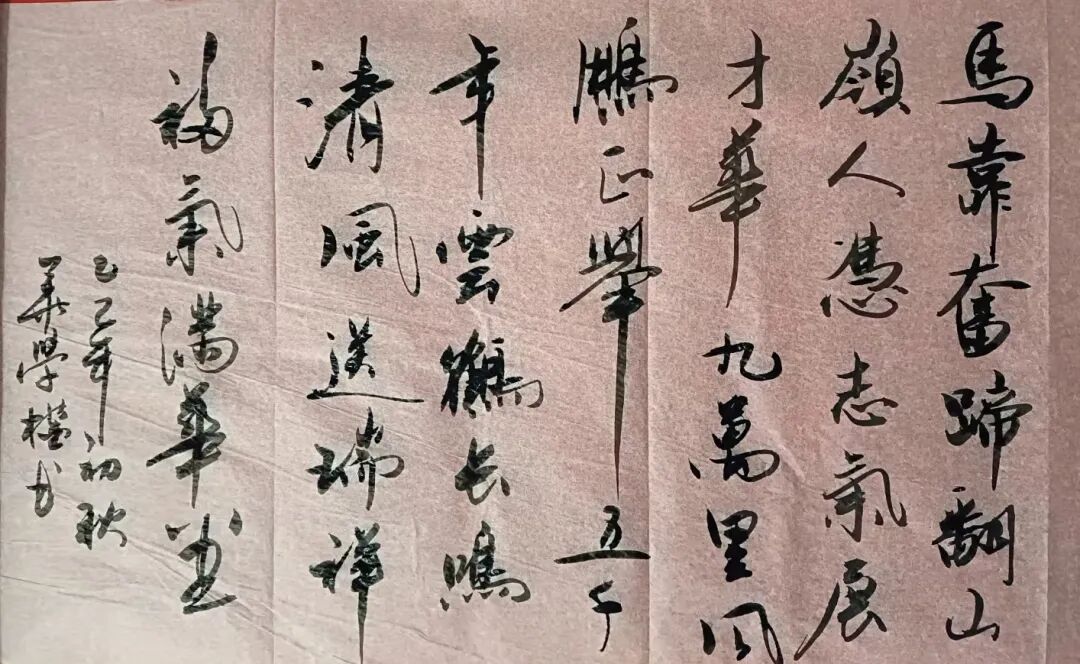 馬靠奮蹄翻山
嶺人憑志氣展
才華九萬里風
鵬正舉五千
年雲鶴長鳴
清風送瑞祥
福氣滿華堂
乙巳年初秋
學權書